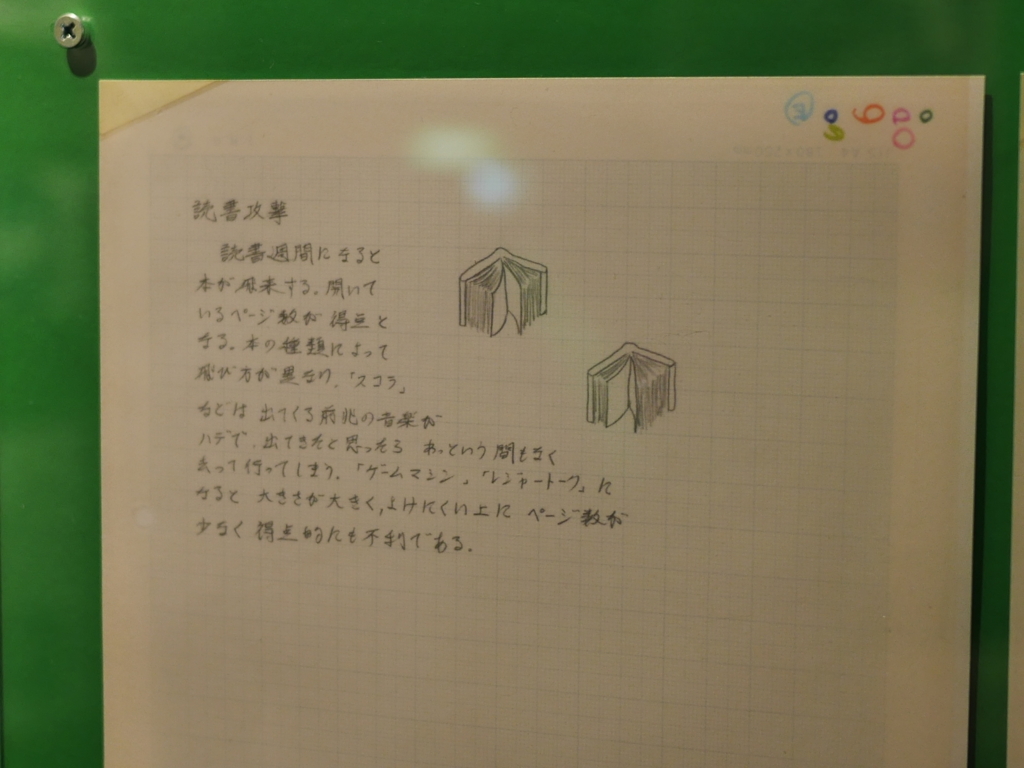 読書攻撃
読書週間になると
本が飛来する。開いて
いるページ数が得点と
なる。本の種類によって
飛び方が異なり、「スコラ」
などは出てくる前兆の音楽が
ハデで、出てきたと思ったら あっという間もなく
去って行ってしまう。「ゲームマシン」、「レジャートーク」に
なると 大きさが大きく、よけにくい上に ページ数が
少なく 得点的にも不利である。